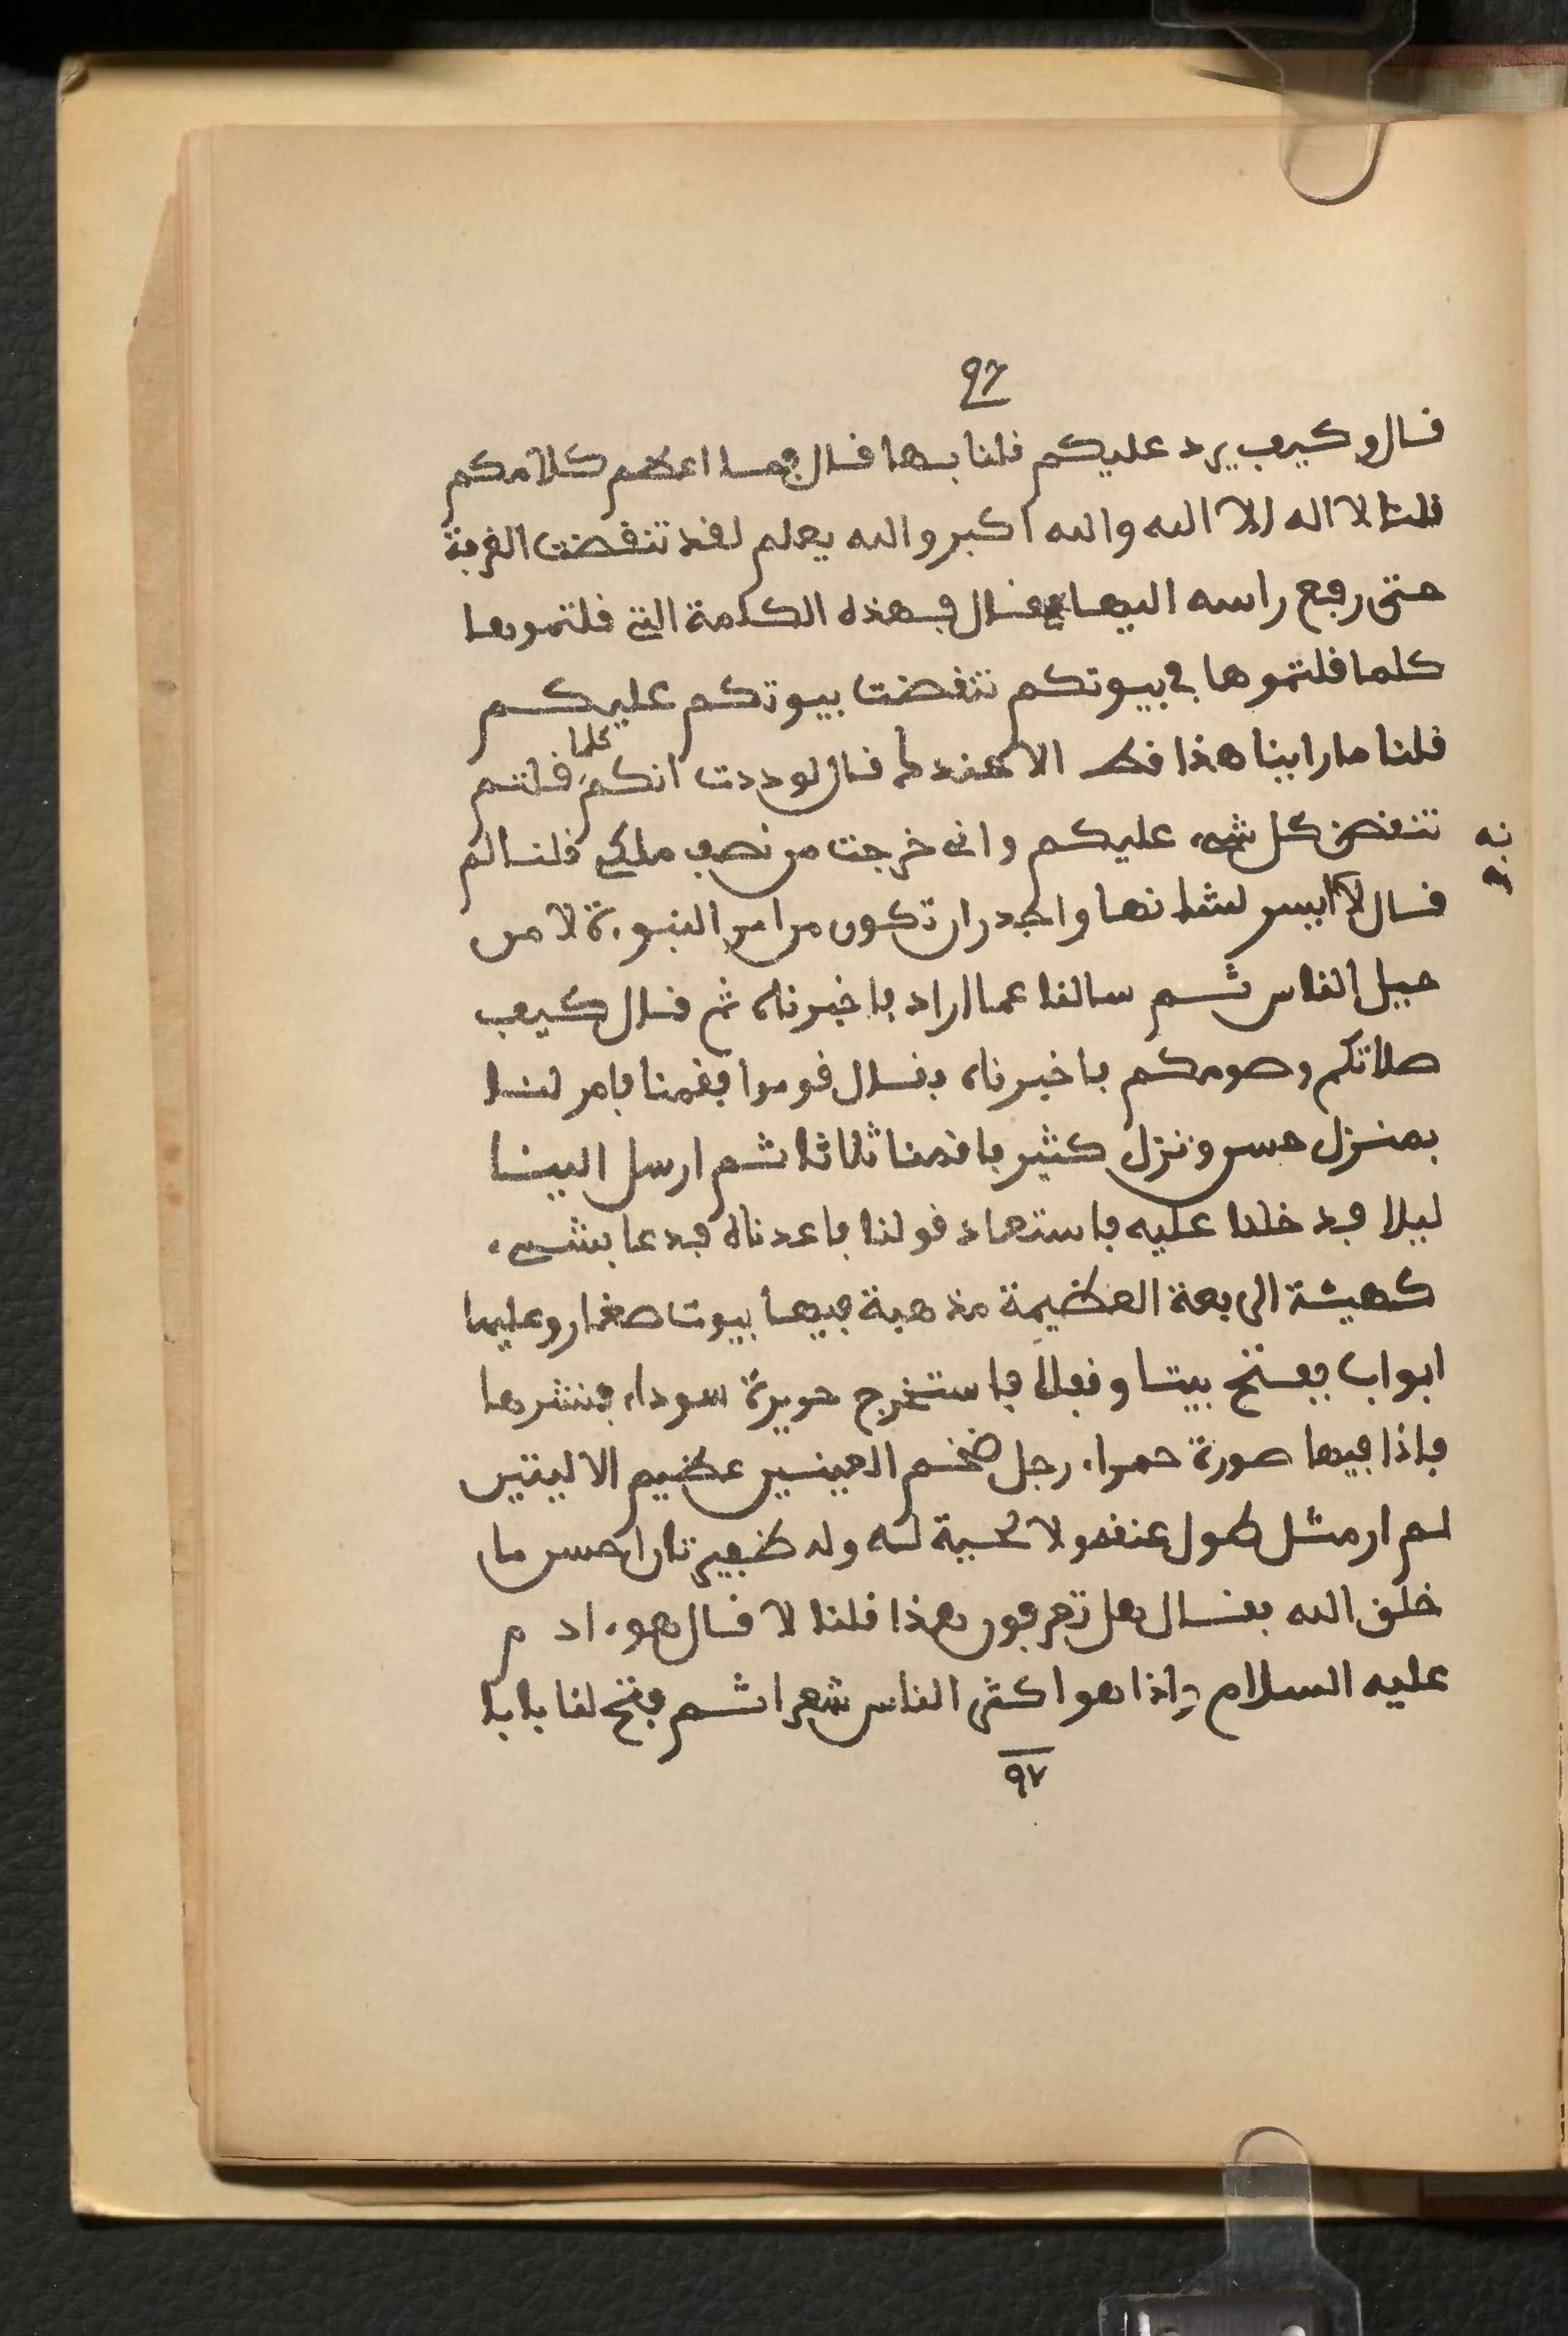 ٩٦
قال وكيف يرد عليكم قلنا بها قال فما اعظم كلامكم
قلنا لا اله الا الله والله اكبر والله يعلم لقد تنفضت الغرفة
حتى رفع راسه اليها فقال فهذه الكلمة التى قلتموها
كلما قلتموها في بيوتكم تنفضت بيوتكم عليكم
قلنا ما راينا هذا قط الا عندك قال لوددت انكم كلما قلتم
تنفض كل شىء عليكم وانى خرجت من نصف ملكى قلنا لم
قال لانه ايسر لشانها واجدر ان تكون من امر النبوءة لا من
حيل الناس ثم سالنا عما اراد فاخبرناه ثم قال كيف
صلاتكم وصومكم فاخبرناه فقال قوموا فقمنا فامر لنا
بمنزل حسن ونزل كثير فاقمنا ثلاثا ثم ارسل الينا
ليلا فدخلنا عليه فاستعاد قولنا فاعدناه فدعا بشىء
كهيئة الربعة العظيمة مذهبة فيها بيوت صغار وعليها
ابواب ففتح بيتا وقفلا فاستخرج حريرة سوداء فنشرها
فاذا فيها صورة حمراء رجل ضخم العينين عظيم الاليتين
لم ار مثل طول عنقه ولا لحية له وله ضفيرتان احسن ما
خلق الله فقال هل تعرفون هذا قلنا لا قال هو ءادم
عليه السلام واذا هو اكثر الناس شعرا ثم فتح لنا بابا
٩٧